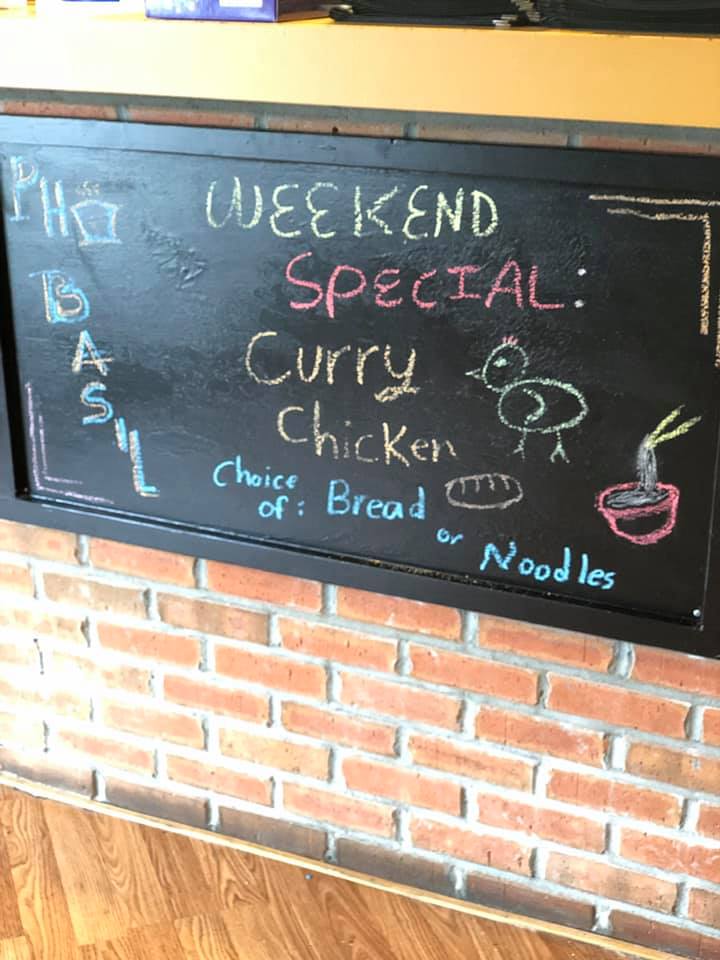 PHO
BASIL
WEEKEND
SPECIAL:
Curry
Chicken
Choice
of: Bread
or Noodles